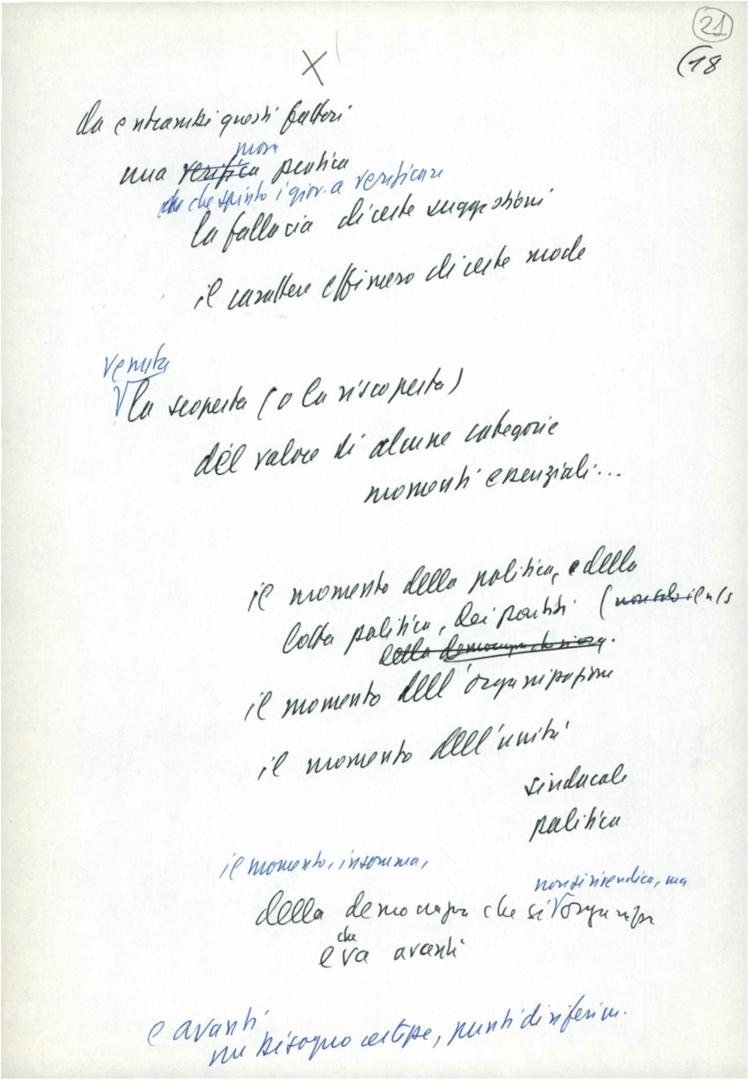 21
(18
X
da entrambi questi fattori
nuova
una verifica pratica
che spinto i giov. a verificare
la fallacia di certe suggestioni
il carattere effimero di certe mode
venuta
la scoperta (o la riscoperta)
del valore di alcune categorie
momenti essenziali...
il momento della politica, e della
lotta politica, dei partiti (non solo
della democrazia
il momento dell'organizzazione
il momento dell'unità
sindacale
politica
il momento, insomma,
non si rivendica, ma
della democrazia che si organizza
che
e va avanti
e avanti
un bisogno certezze, punti di riferim.